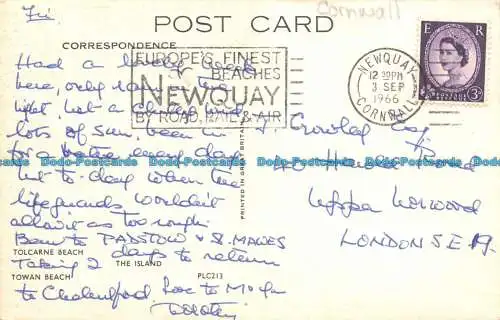 Fri
Cornwall
POST CARD
CORRESPONDENCE
EUROPE'S FINEST
BEACHES
NEWQUAY
BY ROAD, RAIL & AIR
NEWQUAY
12 30PM
3 SEP
1966
CORNWALL
E R
POSTAGE
REVENUE
3D
Had a lovely week
here, only rain
night, but a
lots of sun, been in
for a bathe every day
but to-day when the
lifeguards wouldn't
allow it as too rough.
Been to PADSTOW & St. MAWES
TOLCARNE BEACH
days to return
Taking 2
THE ISLAND
PLC213
TOWAN BEACH
to Chelmsford. Love to
Dorothy
PRINTED IN GREAT BRITAIN
Crowley Esq
40 Road
Upper Norwood
LONDON S.E.19.
Dodo-Postcards Dodo-Postcards Dodo-Postcards Dodo-Postcards Dodo-Postcards